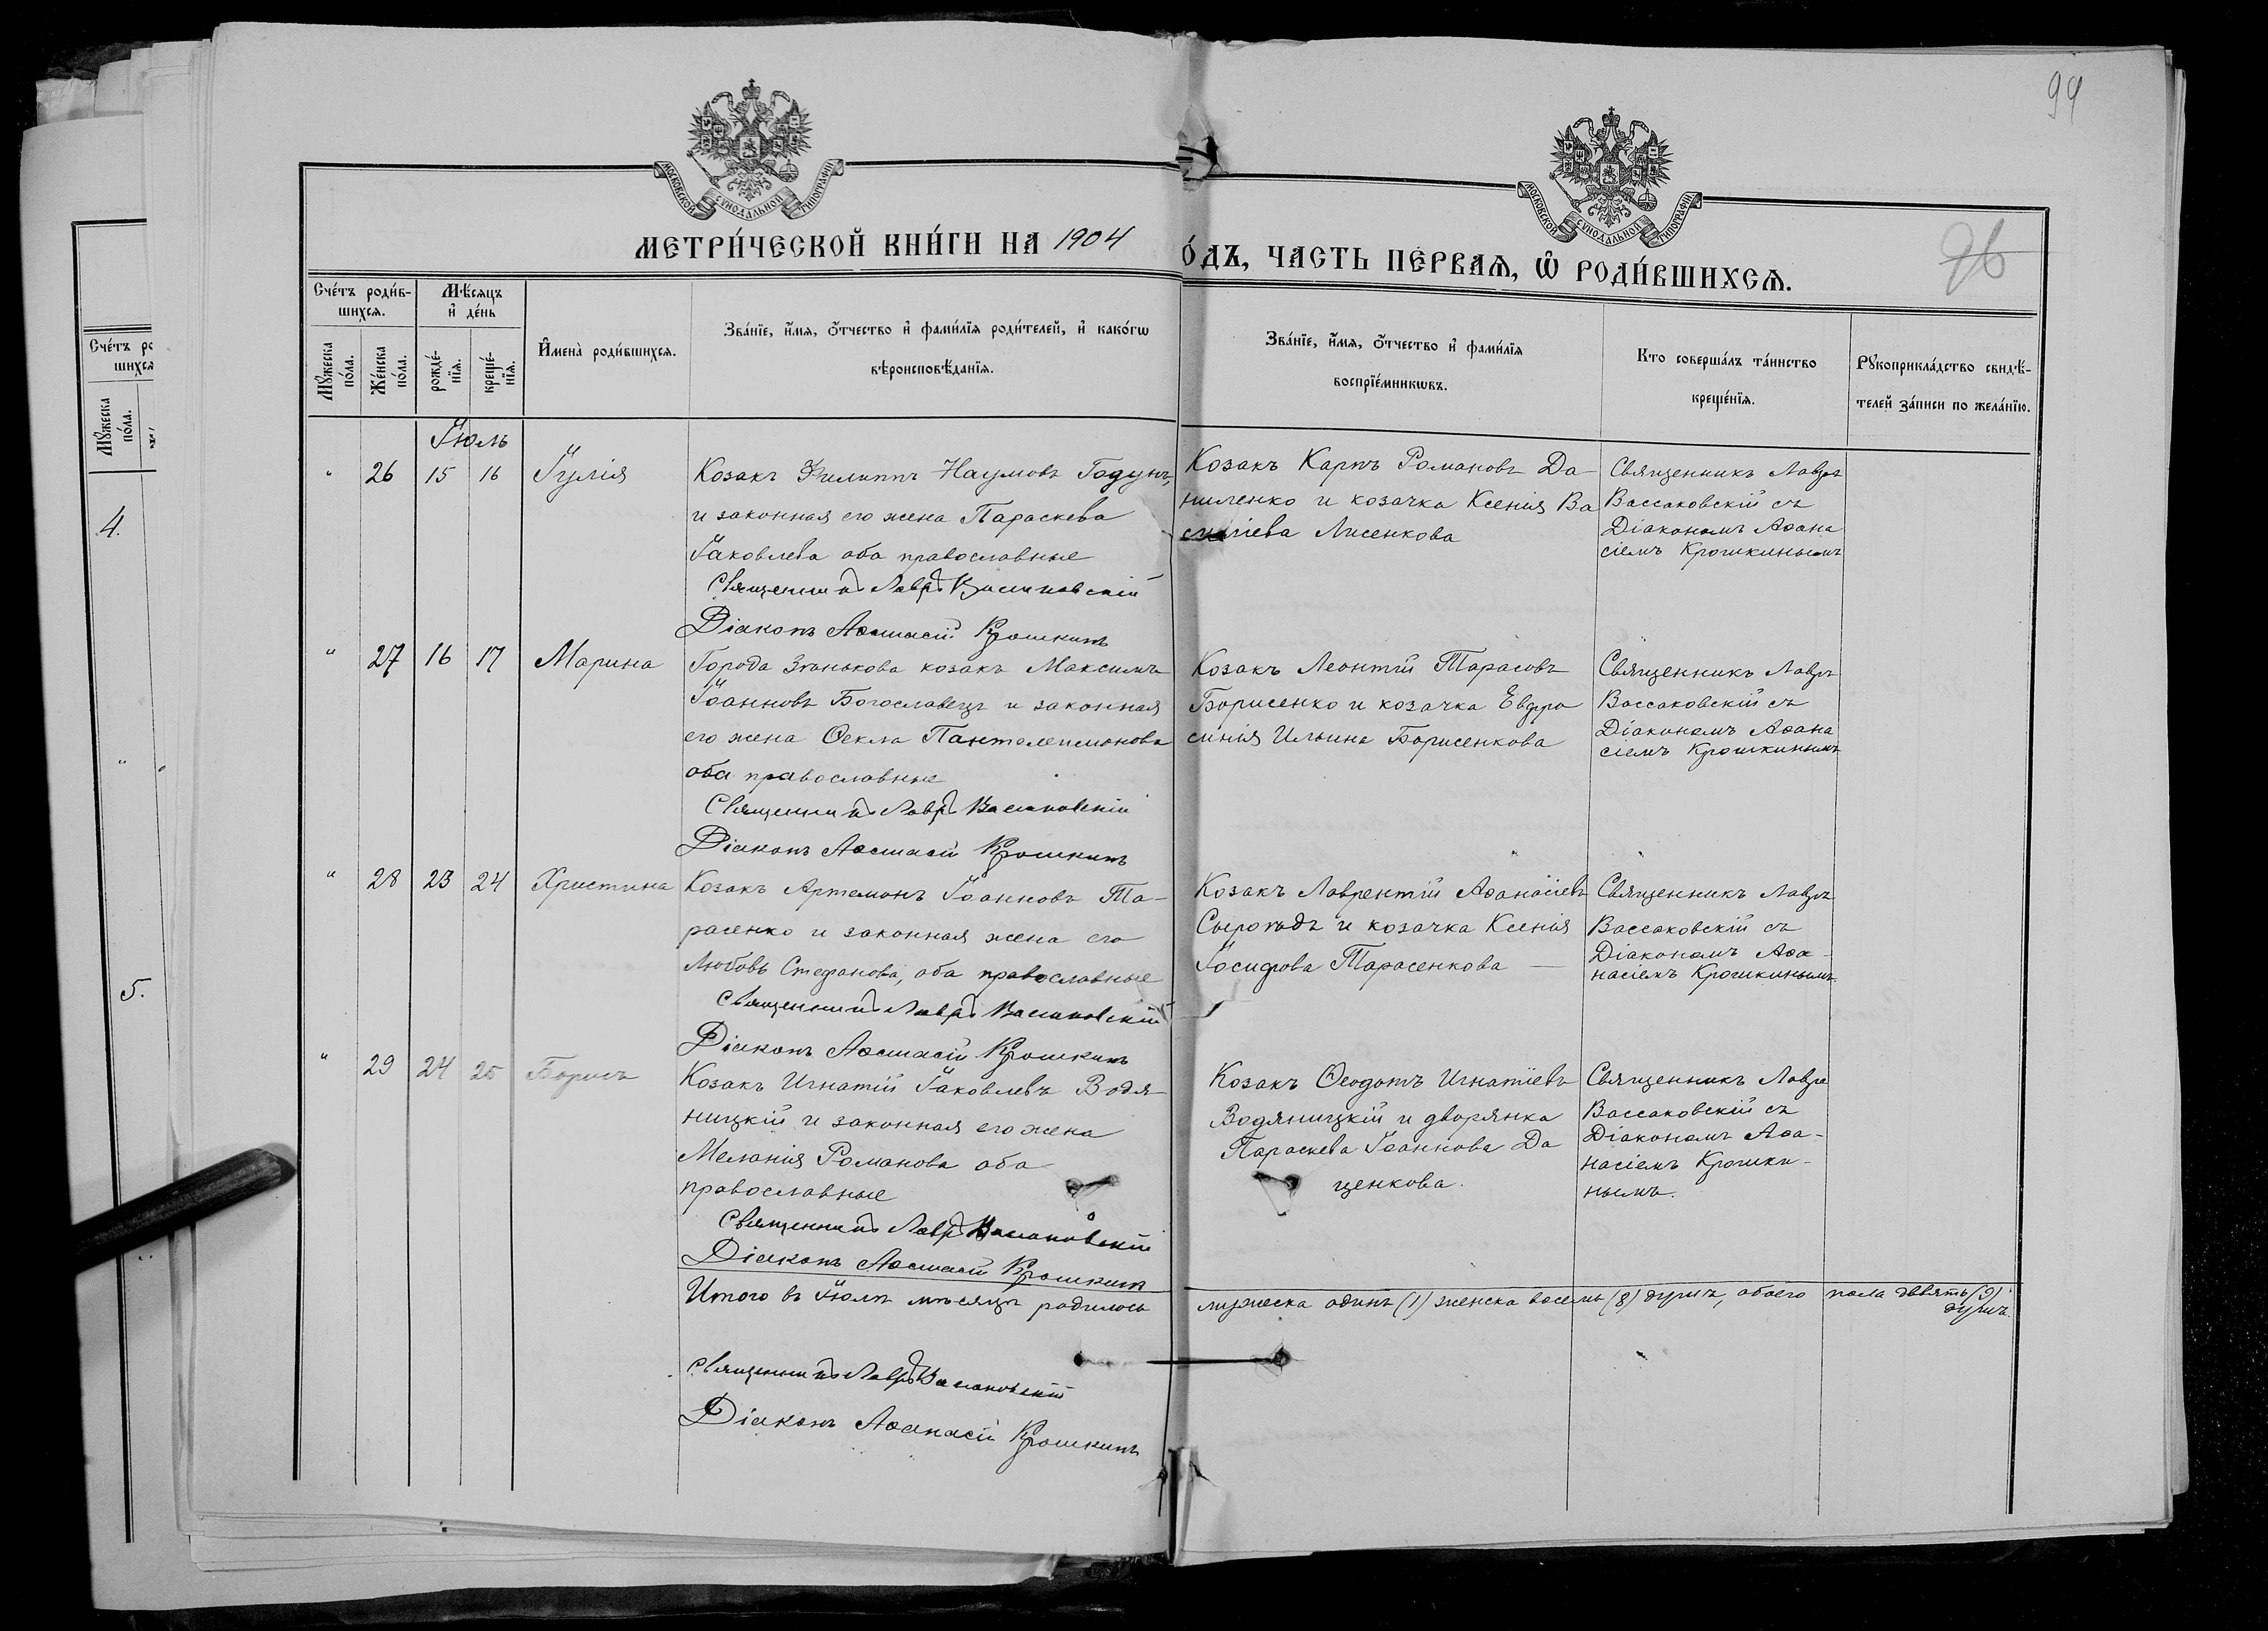 99
96
МОСКОВСКОЙ СѴНОДАЛЬНОЙ ТИПОГРАФІИ
МОСКОВСКОЙ СѴНОДАЛЬНОЙ ТИПОГРАФІИ
МЕТРИ́ЧЕСКОЙ КНИ́ГИ НА 1904
О́ДЪ, ЧАСТЬ ПЕ́РВАѦ, Ѡ҆ РОДИ́ВШИХСѦ.
Сче́тъ роди́в-
шихсѧ.
Мꙋ́жеска по́ла.
Же́нска по́ла.
Мѣ́сѧцъ и҆ де́нь
рожде́-
нїѧ.
креще́-
нїѧ.
И҆мена̀ роди́вшихсѧ.
Зва́нїе, и҆́мѧ, ѻ҆́тчество и҆ фами́лїѧ роди́телей, и҆ како́гѡ
вѣроисповѣ́данїѧ.
Зва́нїе, и҆́мѧ, ѻ҆́тчество и҆ фами́лїѧ
воспрїе́мникѡвъ.
Кто соверша́лъ та́инство
креще́нїѧ.
Рꙋкоприкла́дство свидѣ́-
телей за́писи по жела́нїю.
Сче́тъ ро
шихсѧ
Мꙋ́жеска по́ла.
4.
5.
Іюль
" 26 15 16 Іулія
Козакъ Филиппъ Наумовъ Годунъ,
и законная его жена Параскева
Іаковлева оба православные
Священникъ Лавръ Вассаковскій
Діаконъ Аѳанасій Крошкинъ
Козакъ Карпъ Романовъ Да-
ниленко и козачка Ксенія Ва
силіева Лисенкова
Священникъ Лавръ
Вассаковскій съ
Діакономъ Аѳана
сіемъ Крошкинымъ
" 27 16 17 Марина
Города Зѣнькова козакъ Максимъ
Іоанновъ Богославецъ и законная
его жена Ѳекла Пантелеимонова
оба православные
Священникъ Лавръ Вассаковскій
Діаконъ Аѳанасій Крошкинъ
Козакъ Леонтій Тарасовъ
Борисенко и козачка Евфро
синія Ильина Борисенкова
Священникъ Лавръ
Вассаковскій съ
Діакономъ Аѳана
сіемъ Крошкинымъ
" 28 23 24 Христина
Козакъ Артемонъ Іоанновъ Та-
расенко и законная жена его
Любовь Стефанова, оба православные
Священникъ Лавръ Вассаковскій
Діаконъ Аѳанасій Крошкинъ
Козакъ Лаврентій Аѳанасіевъ
Сыроѣдъ и козачка Ксенія
Іосифова Тарасенкова —
Священникъ Лавръ
Вассаковскій съ
Діакономъ Аѳа-
насіемъ Крошкинымъ.
" 29 24 25 Борисъ
Козакъ Игнатій Іаковлевъ Водя-
ницкій и законная его жена
Меланія Романова оба
православные
Священникъ Лавръ Вассаковскій
Діаконъ Аѳанасій Крошкинъ
Козакъ Ѳеодотъ Игнатіевъ
Водяницкій и дворянка
Параскева Іоаннова Да
ценкова.
Священникъ Лавръ
Вассаковскій съ
Діакономъ Аѳа-
насіемъ Крошки-
нымъ.
Итого въ Іюлѣ мѣсяцѣ родилось мужеска одинъ (1) женска восемь (8) душъ, обоего пола девять (9)
душъ.
Священникъ Лавръ Вассаковскій
Діаконъ Аѳанасій Крошкинъ